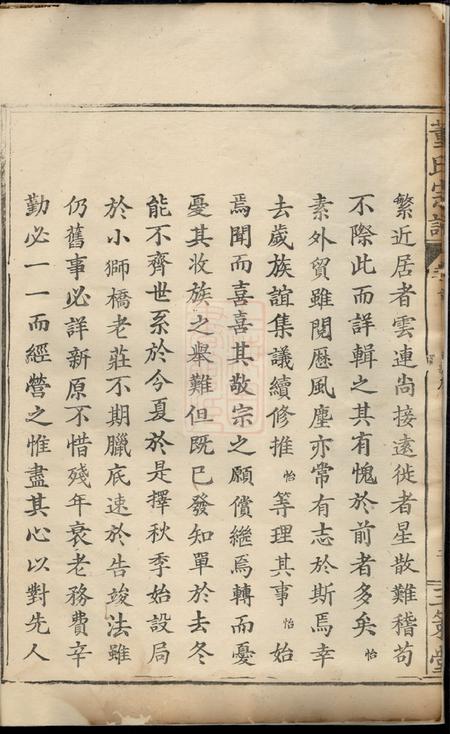 董氏宗譜
三策堂
繁近居者雲連尚接遠徙者星散難稽苟
不際此而詳輯之其有愧於前者多矣怡
素外貿雖閱歷風塵亦常有志於斯焉幸
去歲族誼集議續修推怡等理其事怡始
焉聞而喜喜其敬宗之願償繼焉轉而憂
憂其收族之舉難但既已發知單於去冬
能不齊世系於今夏於是擇秋季始設局
於小獅橋老莊不期臘底速於告竣法雖
仍舊事必詳新原不惜殘年衰老務費辛
勤必一一而經營之惟盡其心以對先人